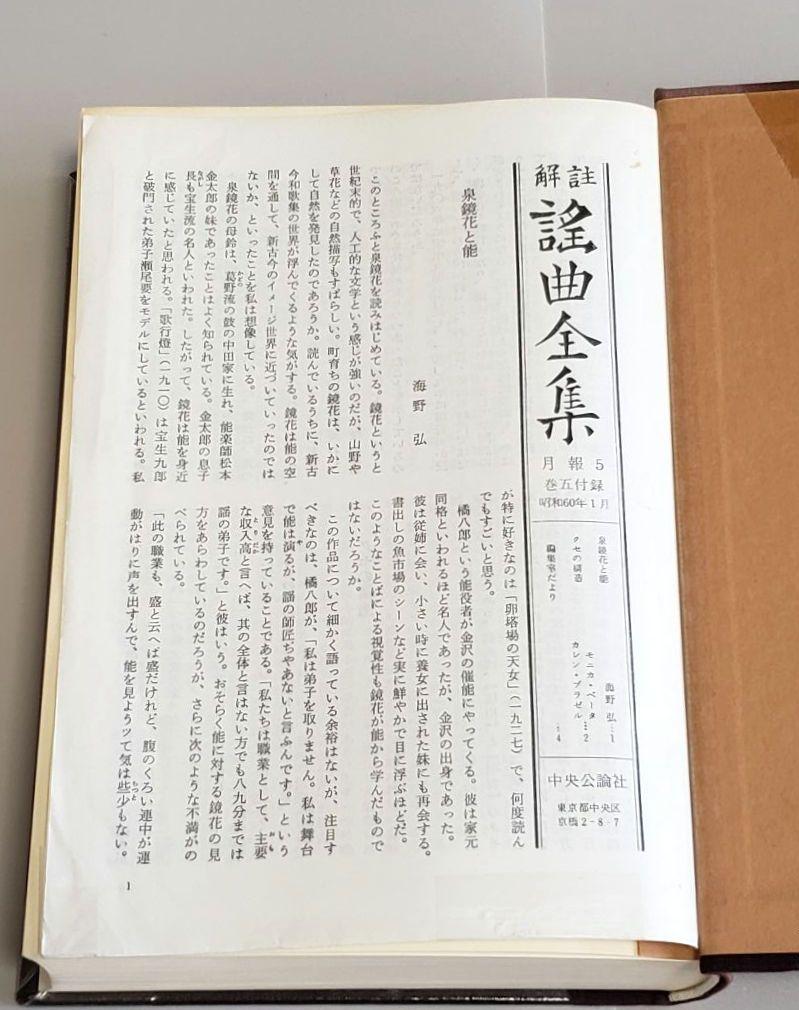 解註
謡曲全集
月報5
巻五付録
昭和60年1月
泉鏡花と能 海野 弘…1
クセの構造 モニカ・ベータ カレン・ブラゼル …2
編集室だより …4
中央公論社
東京都中央区
京橋2-8-7
泉鏡花と能
海野 弘
このところふと泉鏡花を読みはじめている。鏡花というと
世紀末的で、人工的な文学という感じが強いのだが、山野や
草花などの自然描写もすばらしい。町育ちの鏡花は、いかに
して自然を発見したのであろうか。読んでいるうちに、新古
今和歌集の世界が浮んでくるような気がする。鏡花は能の空
間を通して、新古今のイメージ世界に近づいていったのでは
ないか、といったことを私は想像している。
泉鏡花の母鈴は、葛野流の鼓の中田家に生れ、能楽師松本
金太郎の妹であったことはよく知られている。金太郎の息子
長も宝生流の名人といわれた。したがって、鏡花は能を身近
に感じていたと思われる。「歌行燈」(一九一〇)は宝生九郎
と破門された弟子瀬尾要をモデルにしているといわれる。私
が特に好きなのは「卵塔場の天女」(一九二七)で、何度読ん
でもすごいと思う。
橘八郎という能役者が金沢の催能にやってくる。彼は家元
同格といわれるほど名人であったが、金沢の出身であった。
彼は従姉に会い、小さい時に養女に出された妹にも再会する。
書出しの魚市場のシーンなど実に鮮やかで目に浮ぶほどだ。
このようなことばによる視覚性も鏡花が能から学んだもので
はないだろうか。
この作品について細かく語っている余裕はないが、注目す
べきなのは、橘八郎が、「私は弟子を取りません。私は舞台
で能は演るが、謡の師匠ぢやあないと言ふんです。」という
意見を持っていることである。「私たちは職業として、主要
な収入高と言へば、其の全体と言はない方でも八九分までは
謡の弟子です。」と彼はいう。おそらく能に対する鏡花の見
方をあらわしているのだろうが、さらに次のような不満がの
べられている。
「此の職業も、盛と云へば盛だけれど、腹のくろい連中が運
動がはりに声を出すんで、能を見ようッて気は些少もない。
1